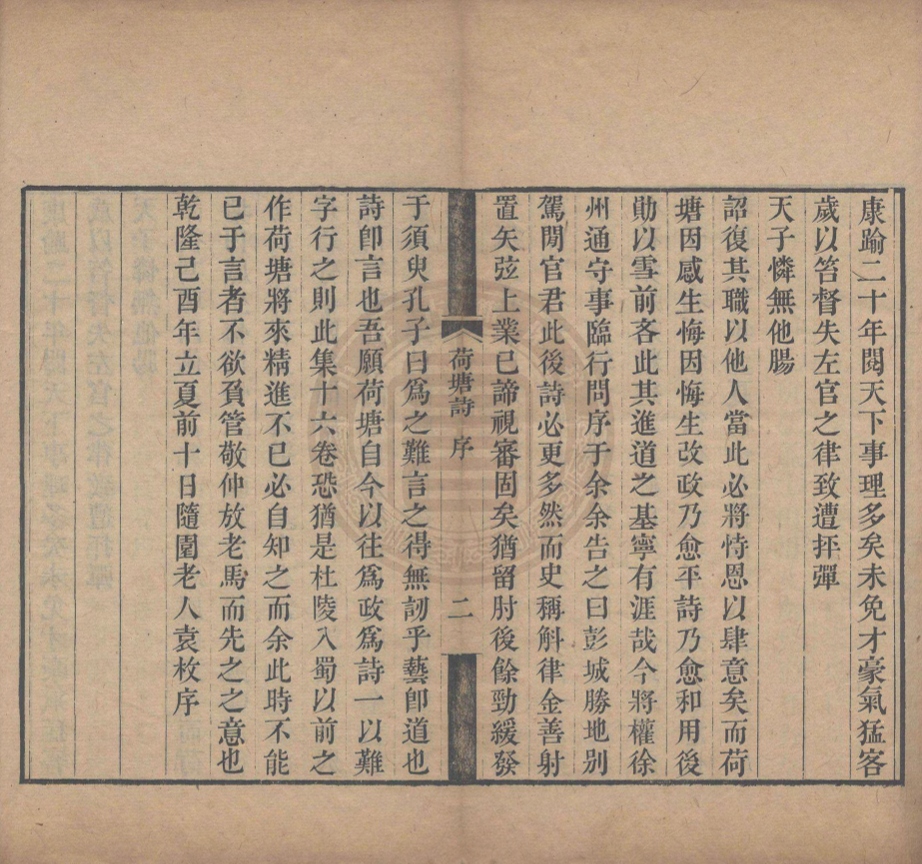 康踰二十年閱天下事理多矣未免才豪氣猛客
歲以笞督失左官之律致遭抨彈
天子憐無他腸
詔復其職以他人當此必將恃恩以肆意矣而荷
塘因感生悔因悔生改政乃愈平詩乃愈和用後
勛以雪前吝此其進道之基寧有涯哉今將權徐
州通守事臨行問序于余余告之曰彭城勝地別
駕閒官君此後詩必更多然而史稱斛律金善射
置矢弦上業已諦視審固矣猶留肘後餘勁緩發
荷塘詩 序
二
于須臾孔子曰爲之難言之得無訒乎藝卽道也
詩卽言也吾願荷塘自今以往爲政爲詩一以難
字行之則此集十六卷恐猶是杜陵入蜀以前之
作荷塘將來精進不已必自知之而余此時不能
已于言者不欲負管敬仲放老馬而先之之意也
乾隆己酉年立夏前十日隨園老人袁枚序